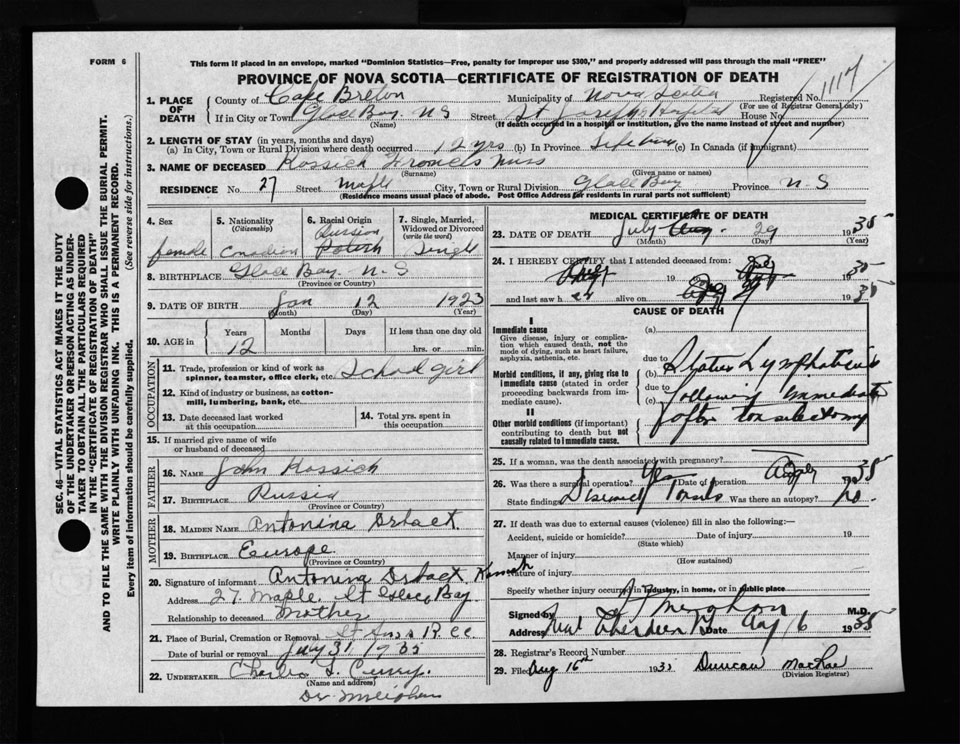 FORM 6
This form if placed in an envelope, marked "Dominion Statistics—Free, penalty for improper use $300," and properly addressed will pass through the mail "FREE"
PROVINCE OF NOVA SCOTIA—CERTIFICATE OF REGISTRATION OF DEATH
SEC. 46—VITAL STATISTICS ACT MAKES IT THE DUTY
OF THE UNDERTAKER OR PERSON ACTING AS UNDER-
TAKER TO OBTAIN ALL THE PARTICULARS REQUIRED
IN THE "CERTIFICATE OF REGISTRATION OF DEATH"
AND TO FILE THE SAME WITH THE DIVISION REGISTRAR WHO SHALL ISSUE THE BURIAL PERMIT.
WRITE PLAINLY WITH UNFADING INK. THIS IS A PERMANENT RECORD.
Every item of information should be carefully supplied. (See reverse side for instructions.)
1. PLACE OF DEATH County of Cape Breton Municipality of Nova Scotia Registered No. 1117
(For use of Registrar General only)
If in City or Town Glace Bay. N S Street St Joseph's Hospital House No.
(Name) (If death occurred in a hospital or institution, give the name instead of street and number)
2. LENGTH OF STAY (in years, months and days)
(a) In City, Town or Rural Division where death occurred 12 yrs (b) In Province Life time (c) In Canada (if immigrant)
3. NAME OF DECEASED Kossick Francis Miss
(Surname) (Given name or names)
RESIDENCE No. 27 Street Maple City, Town or Rural Division Glace Bay Province N. S
(Residence means usual place of abode. Post Office Address for residents in rural parts not sufficient)
4. Sex female
5. Nationality (Citizenship) Canadian
6. Racial Origin Russian Polish
7. Single, Married, Widowed or Divorced (write the word) Single
8. BIRTHPLACE Glace Bay. N. S
(Province or Country)
9. DATE OF BIRTH Jan 12 1923
(Month) (Day) (Year)
10. AGE in Years Months Days If less than one day old
12 hrs. or min.
OCCUPATION
11. Trade, profession or kind of work as spinner, teamster, office clerk, etc. School girl
12. Kind of industry or business, as cotton-mill, lumbering, bank, etc.
13. Date deceased last worked at this occupation
14. Total yrs. spent in this occupation
15. If married give name of wife or husband of deceased
FATHER
16. NAME John Kossick
17. BIRTHPLACE Russia
(Province or Country)
MOTHER
18. MAIDEN NAME Antonina
19. BIRTHPLACE Europe
(Province or Country)
20. Signature of informant Antonina
Address 27. Maple St Glace Bay.
Relationship to deceased Mother
21. Place of Burial, Cremation or Removal St Anns
Date of burial or removal July 31 1935
22. UNDERTAKER Charles L. Curry.
(Name and address)
Dr. McLeighan
MEDICAL CERTIFICATE OF DEATH
23. DATE OF DEATH July Aug. 29 1935
(Month) (Day) (Year)
24. I HEREBY CERTIFY that I attended deceased from:
19 35
and last saw her alive on 1935
CAUSE OF DEATH
I
Immediate cause
Give disease, injury or complication which caused death, not the mode of dying, such as heart failure, asphyxia, asthenia, etc.
(a)
due to
Morbid conditions, if any, giving rise to immediate cause (stated in order proceeding backwards from immediate cause).
(b) Status Lymphaticus
due to
(c) following immediately after tonsilectomy
II
Other morbid conditions (if important) contributing to death but not causally related to immediate cause.
25. If a woman, was the death associated with pregnancy?
26. Was there a surgical operation? Yes Date of operation July 1935
State findings Diseased Tonsils Was there an autopsy? No.
27. If death was due to external causes (violence) fill in also the following:—
Accident, suicide or homicide? Date of injury 19
(State which)
Manner of injury
(How sustained)
Nature of injury
Specify whether injury occurred in industry, in home, or in public place
Signed by M.D.
Address New Aberdeen Date Aug 6 1935
28. Registrar's Record Number
29. Filed Aug 16th 1935 Duncan MacRae
(Division Registrar)